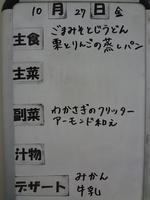 10月27日金
主食
ごまみそとじうどん
栗とりんごの蒸しパン
主菜
副菜
わかさぎのフリッター
アーモンド和え
汁物
デザート
みかん
牛乳